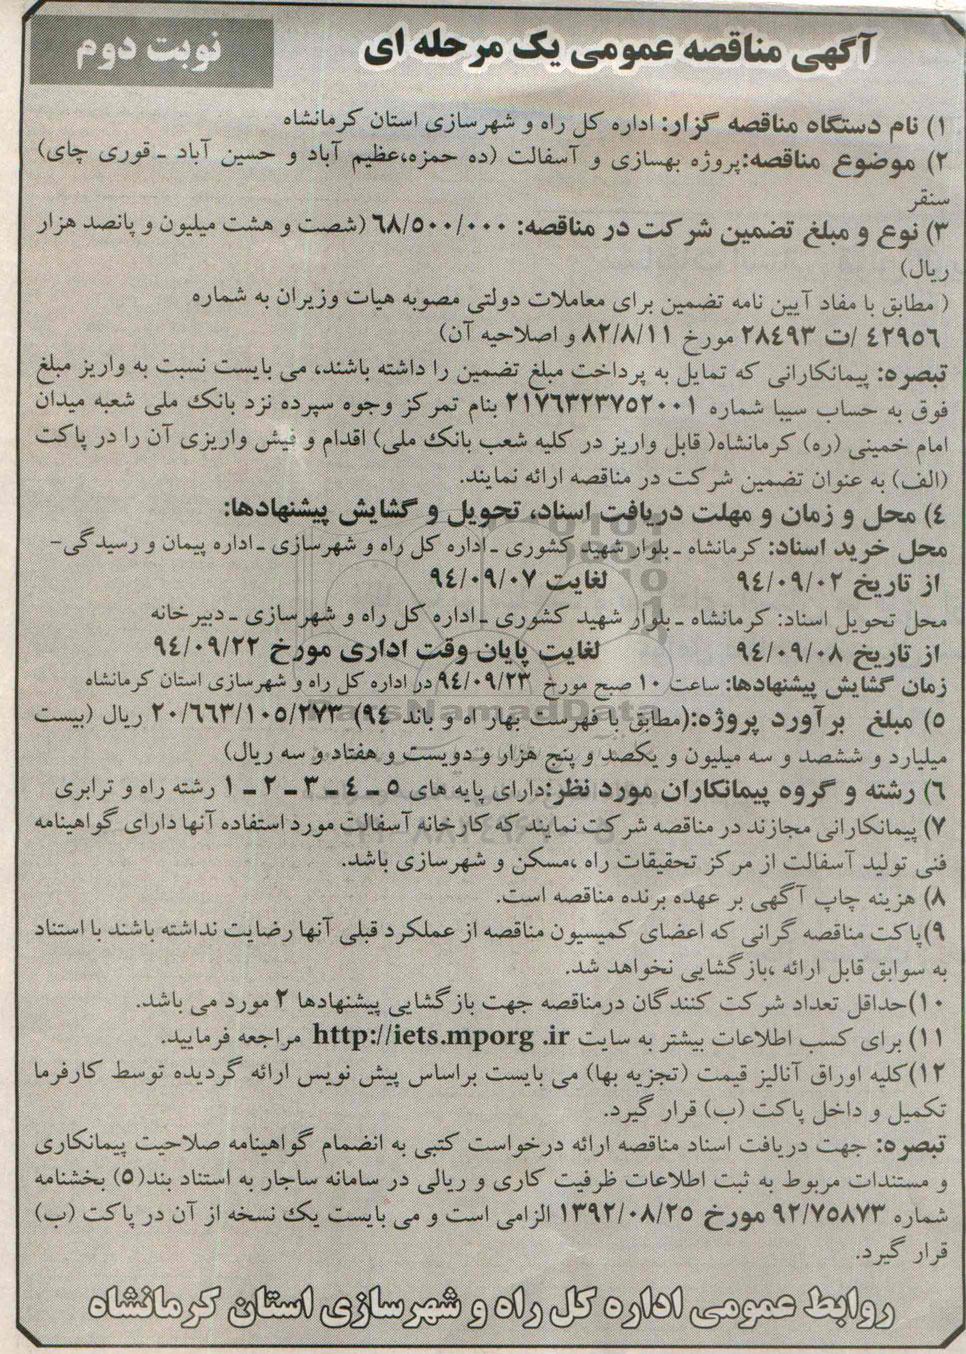 آگهی مناقصه عمومی یک مرحله ای
نوبت دوم
۱) نام دستگاه مناقصه گزار: اداره کل راه و شهرسازی استان کرمانشاه
۲) موضوع مناقصه:پروژه بهسازی و آسفالت (ده حمزه،عظیم آباد و حسین آباد ـ قوری چای)
سنقر
۳) نوع و مبلغ تضمین شرکت در مناقصه: ۶۸/۵۰۰/۰۰۰ (شصت و هشت میلیون و پانصد هزار
ریال)
( مطابق با مفاد آیین نامه تضمین برای معاملات دولتی مصوبه هیات وزیران به شماره
۴۲۹۵۶ /ت ۲۸۴۹۳ مورخ ۸۲/۸/۱۱ و اصلاحیه آن)
تبصره: پیمانکارانی که تمایل به پرداخت مبلغ تضمین را داشته باشند، می بایست نسبت به واریز مبلغ
فوق به حساب سیبا شماره ۲۱۷۶۳۲۳۷۵۲۰۰۱ بنام تمرکز وجوه سپرده نزد بانک ملی شعبه میدان
امام خمینی (ره) کرمانشاه( قابل واریز در کلیه شعب بانک ملی) اقدام و فیش واریزی آن را در پاکت
(الف) به عنوان تضمین شرکت در مناقصه ارائه نمایند.
۴) محل و زمان و مهلت دریافت اسناد، تحویل و گشایش پیشنهادها:
محل خرید اسناد: کرمانشاه ـ بلوار شهید کشوری ـ اداره کل راه و شهرسازی ـ اداره پیمان و رسیدگی-
از تاریخ ۹۴/۰۹/۰۲ لغایت ۹۴/۰۹/۰۷
محل تحویل اسناد: کرمانشاه ـ بلوار شهید کشوری ـ اداره کل راه و شهرسازی ـ دبیرخانه
از تاریخ ۹۴/۰۹/۰۸ لغایت پایان وقت اداری مورخ ۹۴/۰۹/۲۲
زمان گشایش پیشنهادها: ساعت ۱۰ صبح مورخ ۹۴/۰۹/۲۳ در اداره کل راه و شهرسازی استان کرمانشاه
ParsNamadData
۵) مبلغ برآورد پروژه:(مطابق با فهرست بهار اه و باند ۹۴) ۲۰/۶۶۳/۱۰۵/۲۷۳ ریال (بیست
میلیارد و ششصد و سه میلیون و یکصد و پنج هزار و دویست و هفتاد و سه ریال)
۶) رشته و گروه پیمانکاران مورد نظر:دارای پایه های ۵ ـ ۴ ـ ۳ ـ ۲ ـ ۱ رشته راه و ترابری
۷) پیمانکارانی مجازند در مناقصه شرکت نمایند که کارخانه آسفالت مورد استفاده آنها دارای گواهینامه
فنی تولید آسفالت از مرکز تحقیقات راه ،مسکن و شهرسازی باشد.
۸) هزینه چاپ آگهی بر عهده برنده مناقصه است.
۹)پاکت مناقصه گرانی که اعضای کمیسیون مناقصه از عملکرد قبلی آنها رضایت نداشته باشند با استناد
به سوابق قابل ارائه ،بازگشایی نخواهد شد.
۱۰)حداقل تعداد شرکت کنندگان درمناقصه جهت بازگشایی پیشنهادها ۲ مورد می باشد.
۱۱) برای کسب اطلاعات بیشتر به سایت http://iets.mporg .ir مراجعه فرمایید.
۱۲)کلیه اوراق آنالیز قیمت (تجزیه بها) می بایست براساس پیش نویس ارائه گردیده توسط کارفرما
تکمیل و داخل پاکت (ب) قرار گیرد.
تبصره: جهت دریافت اسناد مناقصه ارائه درخواست کتبی به انضمام گواهینامه صلاحیت پیمانکاری
و مستندات مربوط به ثبت اطلاعات ظرفیت کاری و ریالی در سامانه ساجار به استناد بند(۵) بخشنامه
شماره ۹۲/۷۵۸۷۳ مورخ ۱۳۹۲/۰۸/۲۵ الزامی است و می بایست یک نسخه از آن در پاکت (ب)
قرار گیرد.
روابط عمومی اداره کل راه و شهرسازی استان کرمانشاه